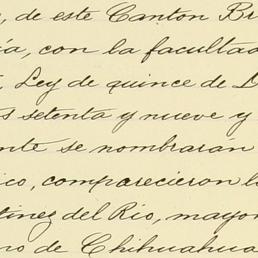 , de este Canton Br
ía, con la facultad
, Ley de quince de D
s setenta y nueve y
nte se nombrarán
ico, comparecieron l
tinez del Rio, mayor
no de Chihuahua